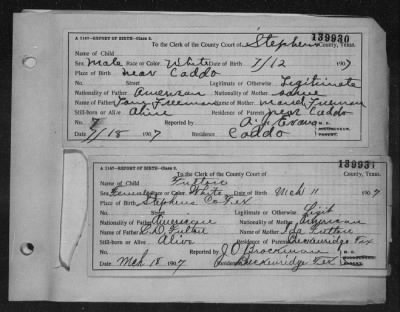 139930
A 1147—REPORT OF BIRTH—Class 3.
To the Clerk of the County Court of Stephens County, Texas.
Name of Child
Sex Male Race or Color White Date of Birth 7/12 1907
Place of Birth near Caddo
Street Legitimate or Otherwise Legitimate
Nationality of Father American Nationality of Mother same
Name of Father Tom Freeman Name of Mother Freeman
Still-born or Alive Alive Residence of Parents near Caddo
No. 7 Reported by
Date 7/18 1907 Residence Caddo
139931
A 1147—REPORT OF BIRTH—Class 3.
Name of Child Fulton
Sex Female Race or Color White Date of Birth Mch 11 1907
Place of Birth Stephens Co Tex
Street Legitimate or Otherwise Legit
Nationality of Father American Nationality of Mother American
Name of Father C. D. Fulton Name of Mother Ida Fulton
Still-born or Alive Alive Residence of Parents Breckenridge Tex
Reported by J. O. Brockman
Mch 18 1907 Residence Breckenridge Tex